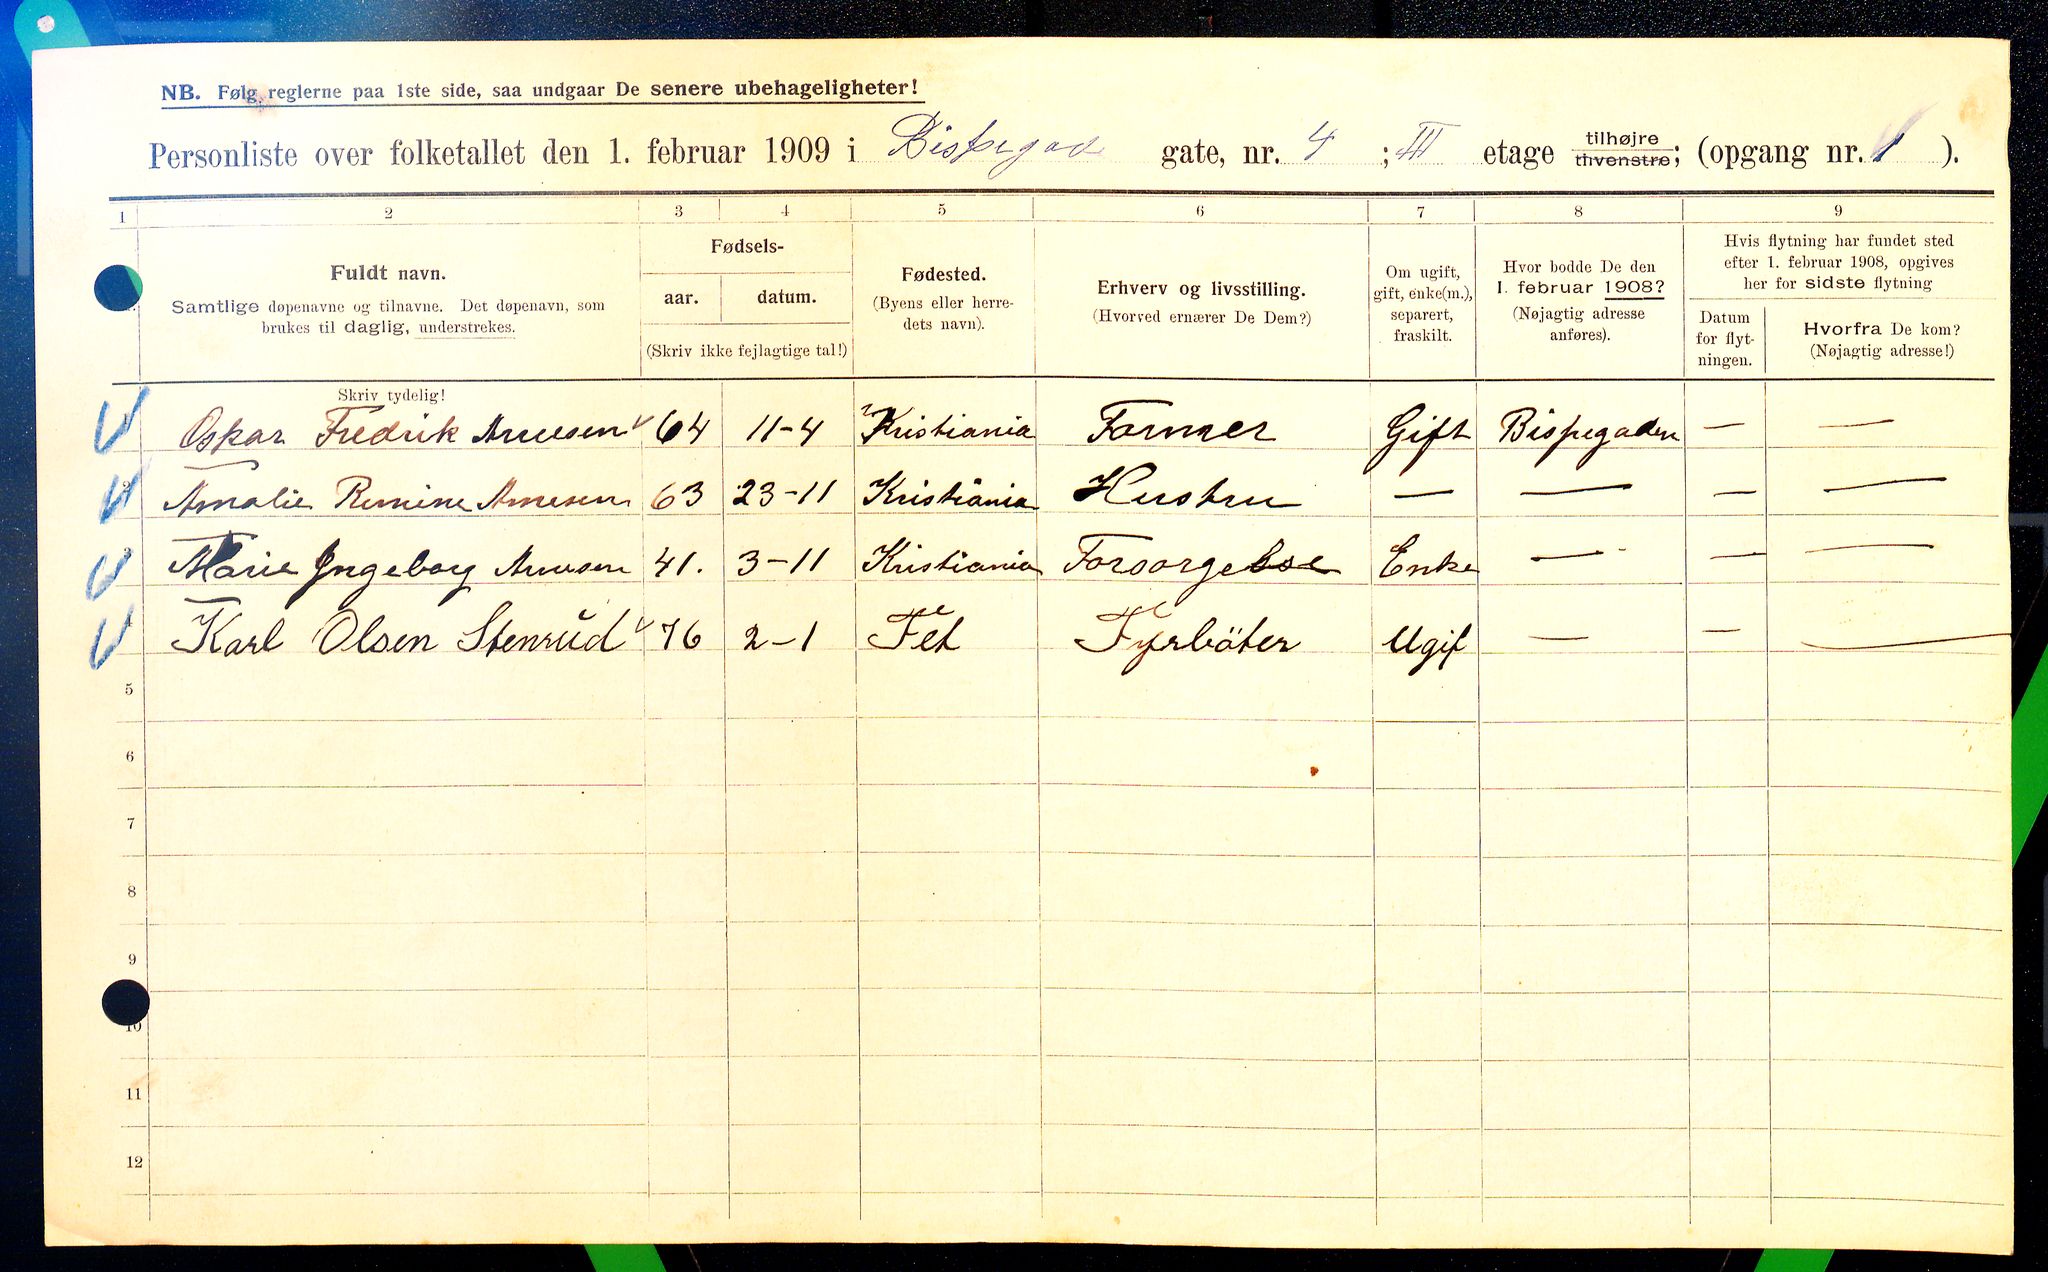 NB. Følg reglerne paa 1ste side, saa undgaar De senere ubehageligheter!
Personliste over folketallet den 1. februar 1909 i Bispegad gate, nr. 4 ; III etage tilhøjre / tilvenstre; (opgang nr. 1 ).
1 2 3 4 5 6 7 8 9
Fuldt navn.
Samtlige døpenavne og tilnavne. Det døpenavn, som
brukes til daglig, understrekes.
Fødsels-
aar. datum.
(Skriv ikke fejlagtige tal!)
Fødested.
(Byens eller herre-
dets navn).
Erhverv og livsstilling.
(Hvorved ernærer De Dem?)
Om ugift,
gift, enke(m.),
separert,
fraskilt.
Hvor bodde De den
1. februar 1908?
(Nøjagtig adresse
anføres).
Hvis flytning har fundet sted
efter 1. februar 1908, opgives
her for sidste flytning
Datum
for flyt-
ningen.
Hvorfra De kom?
(Nøjagtig adresse!)
Skriv tydelig!
Oskar Fredrik Arnesen 64 11-4 Kristiania Former Gift Bispegaden — —
2 Amalie Arnesen 63 23-11 Kristiania Hustru — — — —
3 Marie Ingeborg Arnesen 41. 3-11 Kristiania Forsørgelse Enke — — —
4 Karl Olsen Stenrud 76 2-1 Fet Fyrböter Ugif — — —
5
6
7
8
9
10
11
12